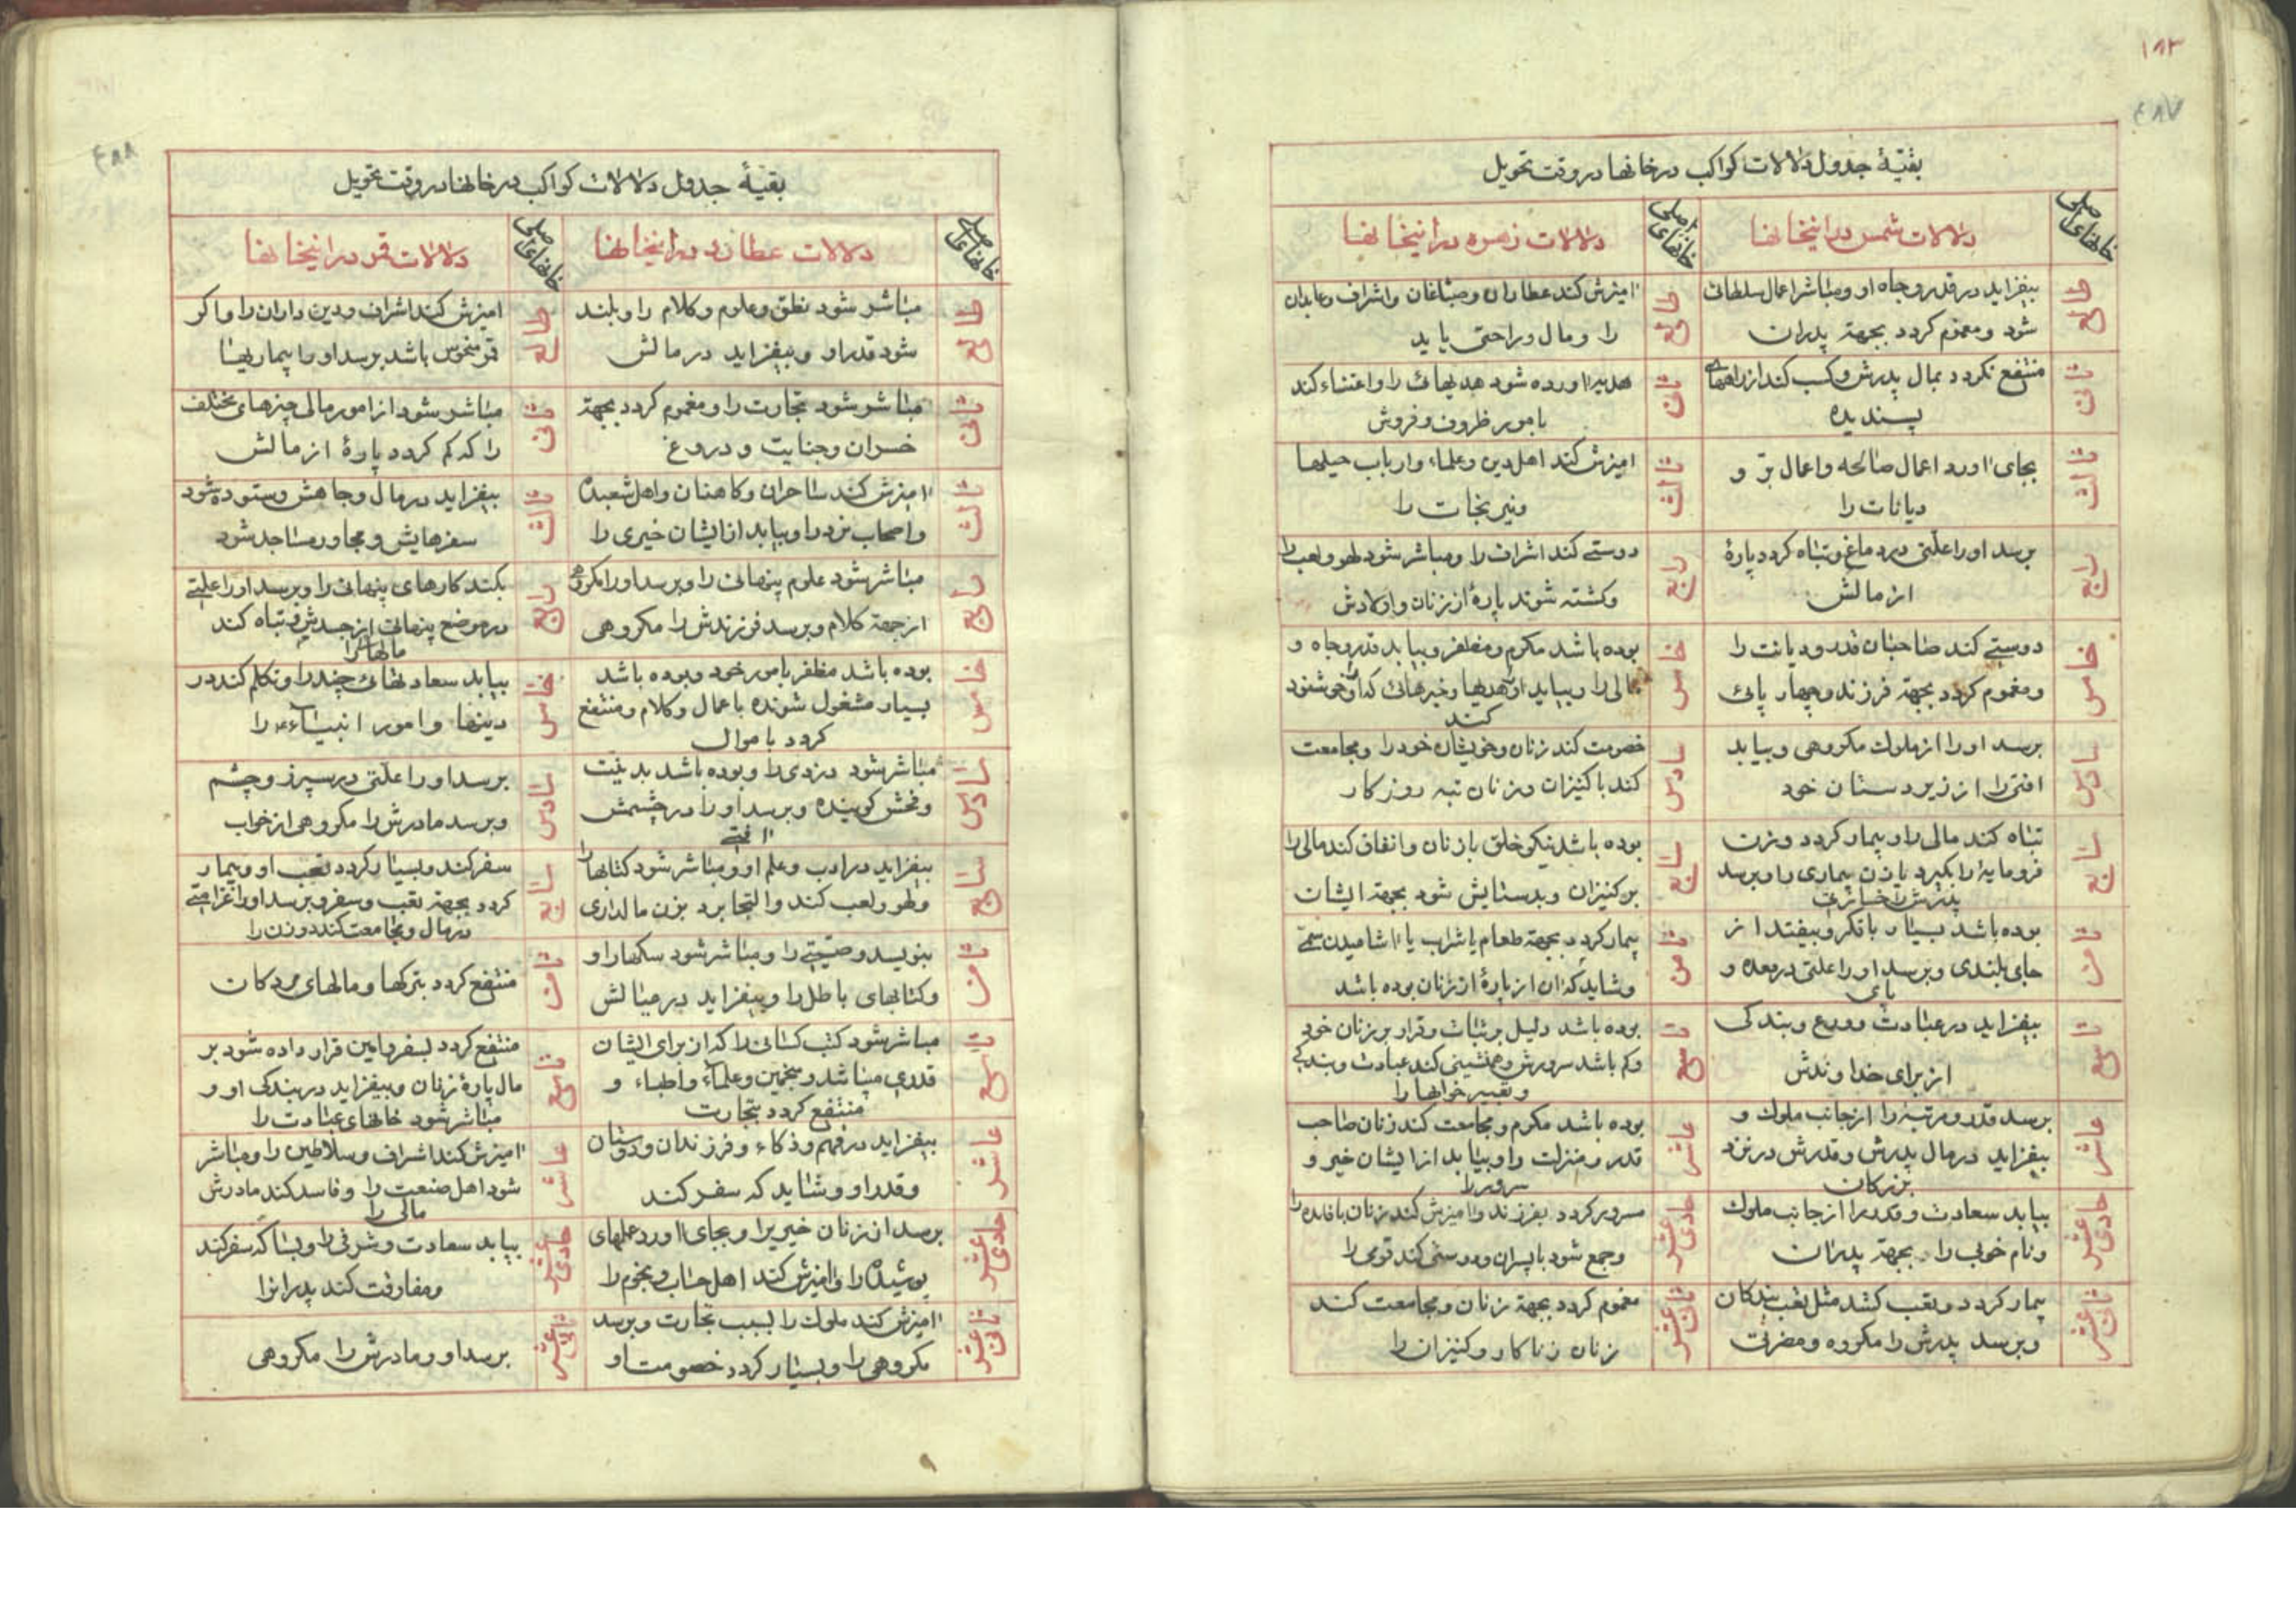 ۱۸۳
۴۸۷
بقیّهٔ جدول دلالات کواکب در خانها در وقت تحویل
خانهای اصلی
دلالات شمس در اینخانها
خانهای اصلی
دلالات زهره در اینخانها
طالع
بیفزاید در قدر و جاه او و مباشر اعمال سلطانی
شود و مغموم کردد بجهة پدران
طالع
امیزش کند عطاران و صباغان و اشراف و عابدان
را و مال و راحتی یابد
ثانی
منتفع نکردد بمال پدرش و کسب کند از راههای
پسندیده
ثانی
هدیه اورده شود هدیهائی را و اعتناء کند
بامور ظروف و فروش
ثالث
بجای اورد اعمال صالحه و اعمال برّ و
دیانات را
ثالث
امیزش کند اهل دین و علماء و ارباب حیلها
و نیرنجات را
رابع
برسد او را علّتی در دماغ و تباه کردد پارهٔ
از مالش
رابع
دوستی کند اشراف را و مباشر شود لهو و لعب را
و کشته شوند پارهٔ از زنان و اولادش
خامس
دوستی کند صاحبان قدر و دیانت را
و مغموم کردد بجهة فرزند و چهارپائی
خامس
بوده باشد مکرم و مظفر و بیابد قدر و جاه و
مالی را و بیابد از هدیها و خبرهائی که او را خوشنود
کند
سادس
برسد او را از ملوک مکروهی و بیابد
افتی را از زیردستان خود
سادس
خصومت کند زنان و خویشان خود را و مجامعت
کند با کنیزان و زنان تبه روزکار
سابع
تباه کند مالی را و بیمار کردد و زن
فرومایه را بگیرد یا زن بیماری را و برسد
پدرش را خسارتی
سابع
بوده باشد نیکو خلق با زنان و انفاق کند مالی را
بر کنیزان و بدستایش شود بجهة ایشان
ثامن
بوده باشد بسیار با فکر و بیفتد از
جای بلندی و برسد او را علتی در معده و
پای
ثامن
بیمار کردد بجهة طعام یا شراب یا اشامیدن سمّی
و شاید که ان از پارهٔ از زنان بوده باشد
تاسع
بیفزاید در عبادت و ورع و بندکی
از برای خداوندش
تاسع
بوده باشد دلیل بر ثبات و قرار بر زنان خود
و کم باشد سرورش و همنشینی کند عبادت و بندکی
و تعبیر خوابها را
عاشر
برسد قدر و مرتبه را از جانب ملوک و
بیفزاید در مال پدرش و قدرش در نزد
بزرکان
عاشر
بوده باشد مکرم و مجامعت کند زنان صاحب
قدر و منزلت را و بیابد از ایشان خیر و
سرور را
حادی عشر
بیابد سعادت و قدر را از جانب ملوک
و نام خوبی را بجهة پدران
حادی عشر
مسرور کردد بفرزند و امیزش کند زنان با فایده را
و جمع شود با پسران و دوستی کند قومی را
ثانی عشر
بیمار کردد و تعب کشد مثل تعب بندکان
و برسد پدرش را مکروه و مضرت
ثانی عشر
مغموم کردد بجهة زنان و مجامعت کند
زنان زناکار و کنیزان را
۴۸۸
بقیهٔ جدول دلالات کواکب در خانها در وقت تحویل
خانهای اصلی
دلالات عطارد در اینخانها
خانهای اصلی
دلالات قمر در اینخانها
طالع
مباشر شود نطق و علوم و کلام را و بلند
شود قدر او و بیفزاید در مالش
طالع
امیزش کند اشراف و دین داران را و اکر
قمر منحوس باشد برسد او را بیماریها
ثانی
مباشر شود تجارت را و مغموم کردد بجهة
خسران و جنایت و دروغ
ثانی
مباشر شود از امور مالی چیزهای مختلف
را که کم کردد پارهٔ از مالش
ثالث
امیزش کند ساحران و کاهنان و اهل شعبده
و اصحاب نرد را و بیابد از ایشان خیری را
ثالث
بیفزاید در مال و جاهش و ستوده شود
سفرهایش و مجاور مساجد شود
رابع
مباشر شود علوم پنهانی را و برسد او را مکروهی
از جهة کلام و برسد فرزندش را مکروهی
رابع
بکند کارهای پنهانی را و برسد او را علتی
در موضع پنهانی از جسدش و تباه کند
مالها را
خامس
بوده باشد مظفر بامور خود و بوده باشد
بسیار مشغول شونده باعمال و کلام و منتفع
کردد باموال
خامس
بیابد سعادتهائی چند را و تکلم کند در
دینها و امور انبیاء را
سادس
مباشر شود دزدی را و بوده باشد بد نیّت
و فحش کوینده و برسد او را در چشمش
افتی
سادس
برسد او را علتی در سپرز و چشم
و برسد مادرش را مکروهی از خواب
سابع
بیفزاید در ادب و علم او و مباشر شود کتابها را
و لهو و لعب کند و التجا برد بزن مالداری
سابع
سفر کند و بسیار کردد تعب او و بیمار
کردد بجهة تعب و سفر و برسد او را غرامتی
در مال و مجامعت کند دو زن را
ثامن
بنویسد وصیّتی را و مباشر شود سکهها را و
و کتابهای باطل را و بیفزاید در عیالش
ثامن
منتفع کردد بترکها و مالهای مردکان
تاسع
مباشر شود کتب کسانی را که از برای ایشان
قدری میباشد و منجمین و علماء و اطباء و
منتفع کردد بتجارت
تاسع
منتفع کردد بسفر و امین قرار داده شود بر
مال پارهٔ زنان و بیفزاید در بندکی او و
مباشر شود خانهای عبادت را
عاشر
بیفزاید در فهم و ذکاء و فرزندان و دوستان
و قدر او و شاید که سفر کند
عاشر
امیزش کند اشراف و سلاطین را و مباشر
شود اهل صنعت را و فاسد کند مادرش
مالی را
حادی عشر
برسد از زنان خیری را و بجای اورد عملهای
پوشیده را و امیزش کند اهل حساب و نجوم را
حادی عشر
بیابد سعادت و شرفی را و بسا که سفر کند
و مفارقت کند پدر را
ثانی عشر
امیزش کند ملوک را بسبب تجارت و برسد
مکروهی را و بسیار کردد خصومت او
ثانی عشر
برسد او و مادرش را مکروهی